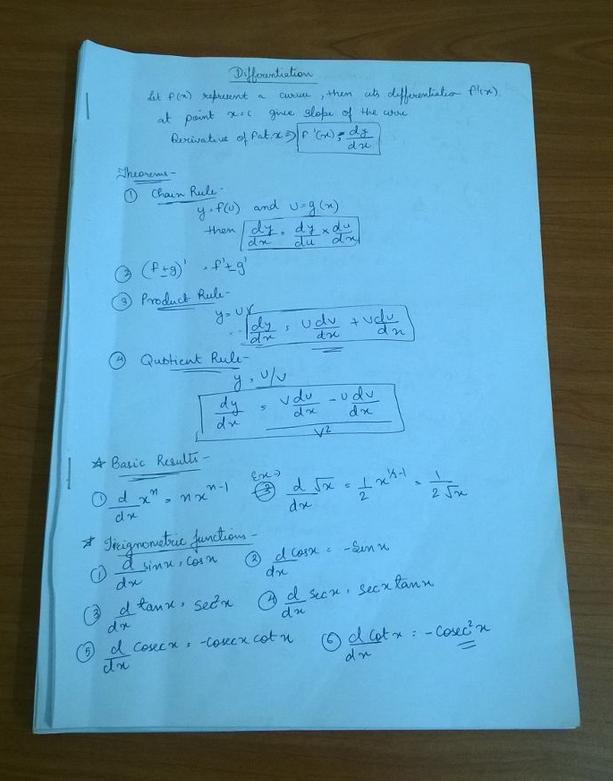 Differentiation
Let f(x) represent a curve, then its differentiation f'(x)
at point x=c gives slope of the curve
Derivative of f at x => f'(x) = dy/dx
Theorems -
① Chain Rule -
y = f(u) and u = g(x)
then dy/dx = dy/du × du/dx
② (f ± g)' = f' ± g'
③ Product Rule -
y = uv
dy/dx = u dv/dx + v du/dx
④ Quotient Rule -
y = u/v
dy/dx = (v du/dx - u dv/dx)/v²
☆ Basic Results -
① d/dx xⁿ = n xⁿ⁻¹ Ex => d/dx √x = 1/2 x^(1/2-1) = 1/(2√x)
☆ Trignometric functions -
① d/dx sinx = cosx ② d/dx cosx = -sinx
③ d/dx tanx = sec²x ④ d/dx secx = secx tanx
⑤ d/dx cosecx = -cosecx cotx ⑥ d/dx cotx = -cosec²x